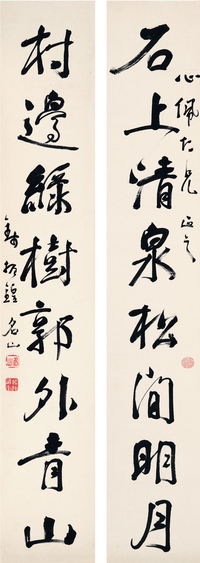 石上清泉松间明月
心佩仁兄正之
村邊綠樹郭外青山
錢振鍠名山